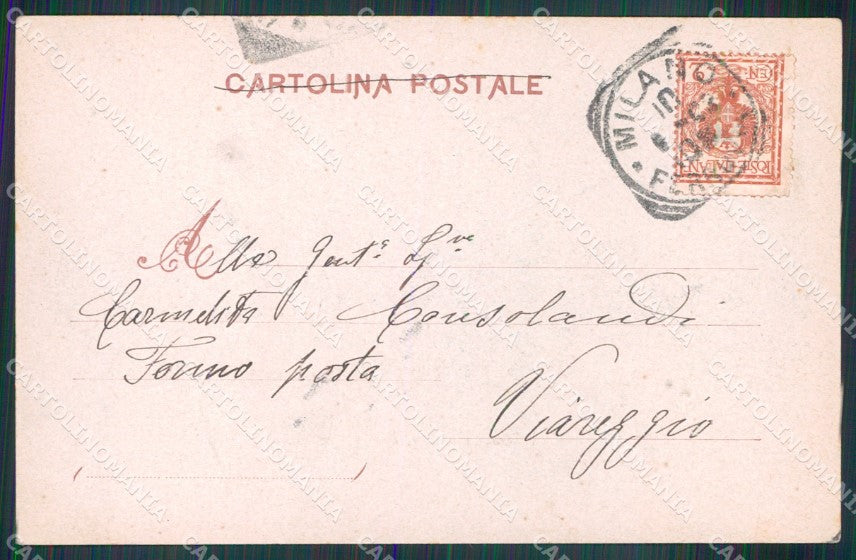 CARTOLINA POSTALE
MILANO
POSTE ITALIANE
Alla Gent.ª Sig.ve
Carmelita Consolandi
Fermo posta
Viareggio
CARTOLINOMANIA